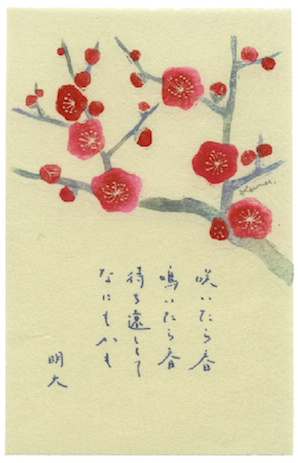 咲いたら春
鳴いたら春
待ち遠しくて
なにもかも
明大